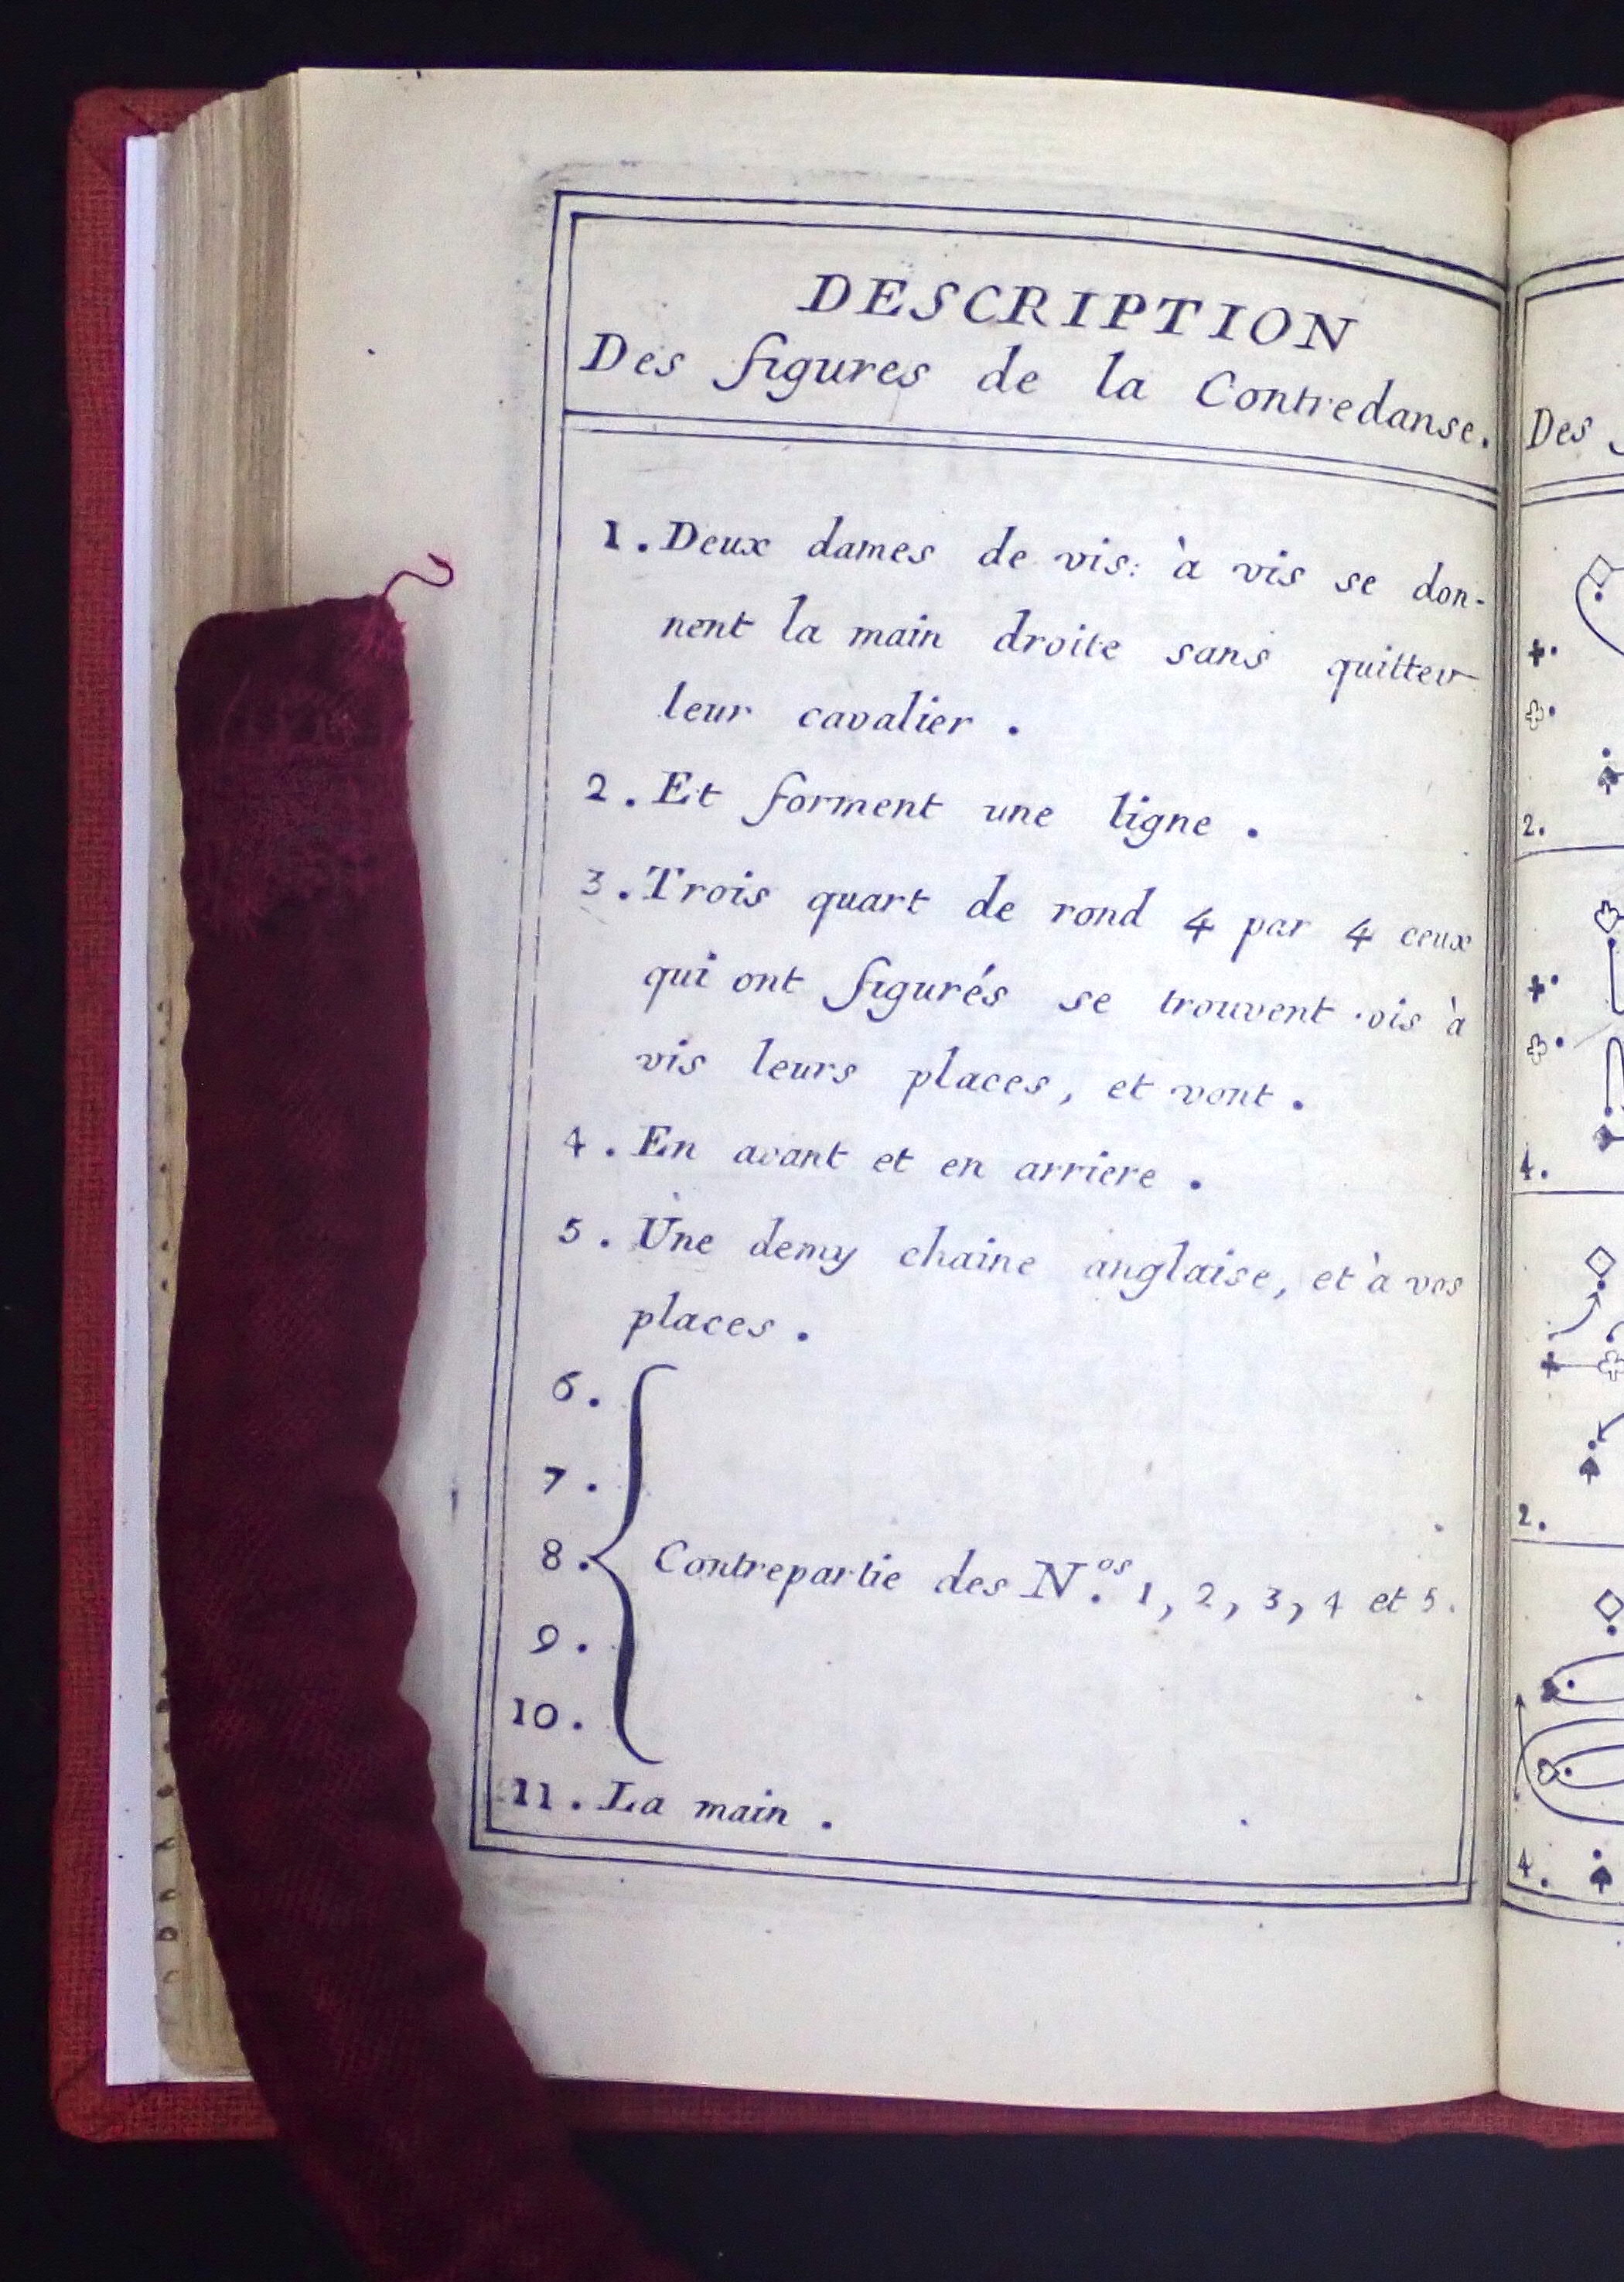 DESCRIPTION
Des figures de la Contredanse.
1. Deux dames de vis: à vis se don-
nent la main droite sans quitter
leur cavalier .
2. Et forment une ligne .
3. Trois quart de rond 4 par 4 ceux
qui ont figurés se trouvent vis à
vis leurs places, et vont .
4. En avant et en arriere .
5. Une demy chaine anglaise, et à vos
places .
6.
7.
8. Contrepartie des N.os 1, 2, 3, 4 et 5.
9.
10.
11. La main .
Des
2.
4.
2.
4.